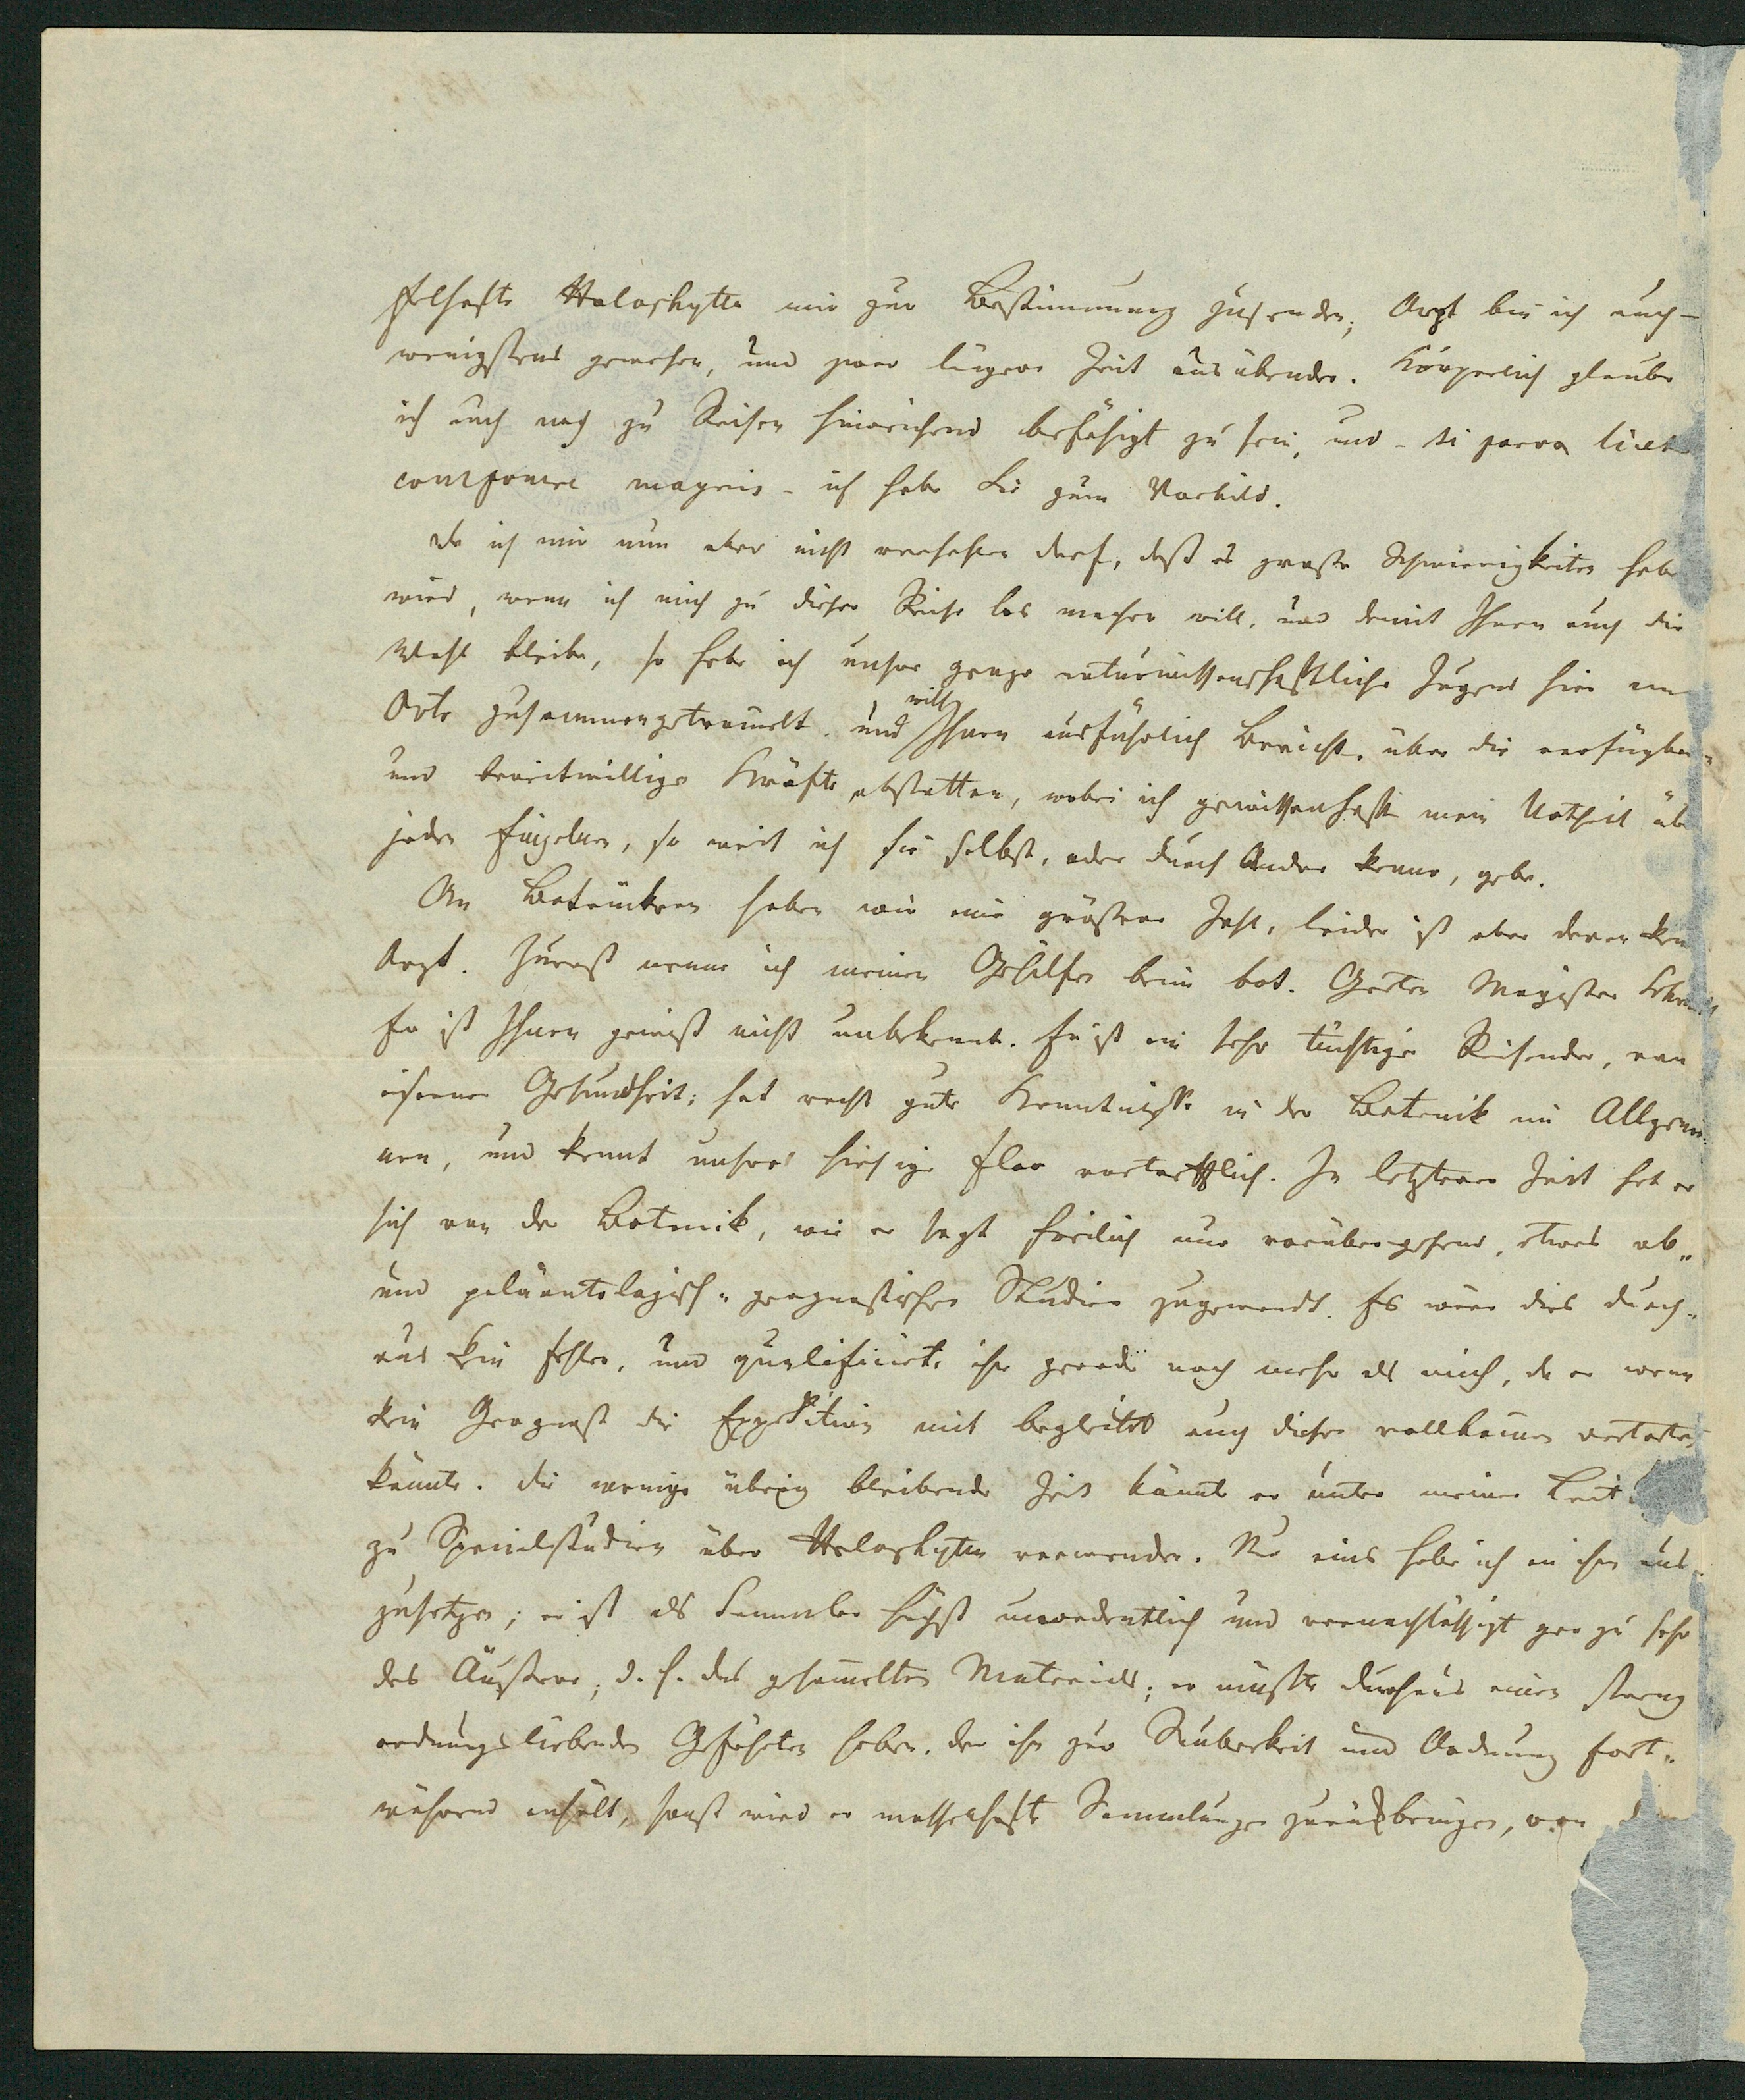 felhafte Halophyten mir zur Bestimmung zusenden; Arzt bin ich auch –
wenigstens gewesen, und zwar längere Zeit ausübender. Körperlich glaube
ich auch noch zu Reisen hinreichend befähigt zu sein, und – si parva licet
componere magnis – ich habe Sie zum Vorbild.
Da ich mir nun aber nicht verhehlen darf, daß es große Schwierigkeiten haben
wird, wenn ich mich zu dieser Reise los machen will, und damit Ihnen auch die
Wahl bleibe, so habe ich unsere ganze naturwissenschaftliche Jugend hier am
Orte zusammengetrommelt und will Ihnen ausführlich Bericht über die verfügbaren
und bereitwilligen Kräfte abstatten, wobei ich gewissenhaft mein Urtheil über
jeden Einzelnen, so weit ich sie selbst, oder durch Andre kenne, gebe.
An Botanikern haben wir eine größere Zahl, leider ist aber davon kein
Arzt. Zuerst nenne ich meinen Gehülfen beim bot. Garten Magister
Er ist Ihnen gewiß nicht unbekannt. Er ist ein sehr tüchtiger Reisender, von
eiserner Gesundheit; hat recht gute Kenntnisse in der Botanik im Allgemei-
nen, und kennt unsere hiesige Flor vortrefflich. In letzterer Zeit hat er
sich von der Botanik, wie er sagt freilich nur vorübergehend, etwas ab-
und paläontologisch-geognostischen Studien zugewendt. Es wäre dies durch-
aus kein Fehler, und qualificirte ihn gerade noch mehr als mich, da er wenn
kein Geognost die Expedition mit begleitet auch diesen vollkommen vertreten
könnte. Die wenige übrig bleibende Zeit könnte er unter meiner Leit
zu Specialstudien über Halophyten verwenden. Nur eins habe ich an ihm aus-
zusetzen; er ist als Sammler höchst unordentlich und vernachlässigt gar zu sehr
das Äußere, d. h. des gesammelten Materials; er müßte durchaus einen streng
ordnungsliebenden Gefährten haben, der ihn zur Sauberkeit und Ordnung fort-
während anhält, sonst wird er massenhafte Sammlungen zurückbringen, von